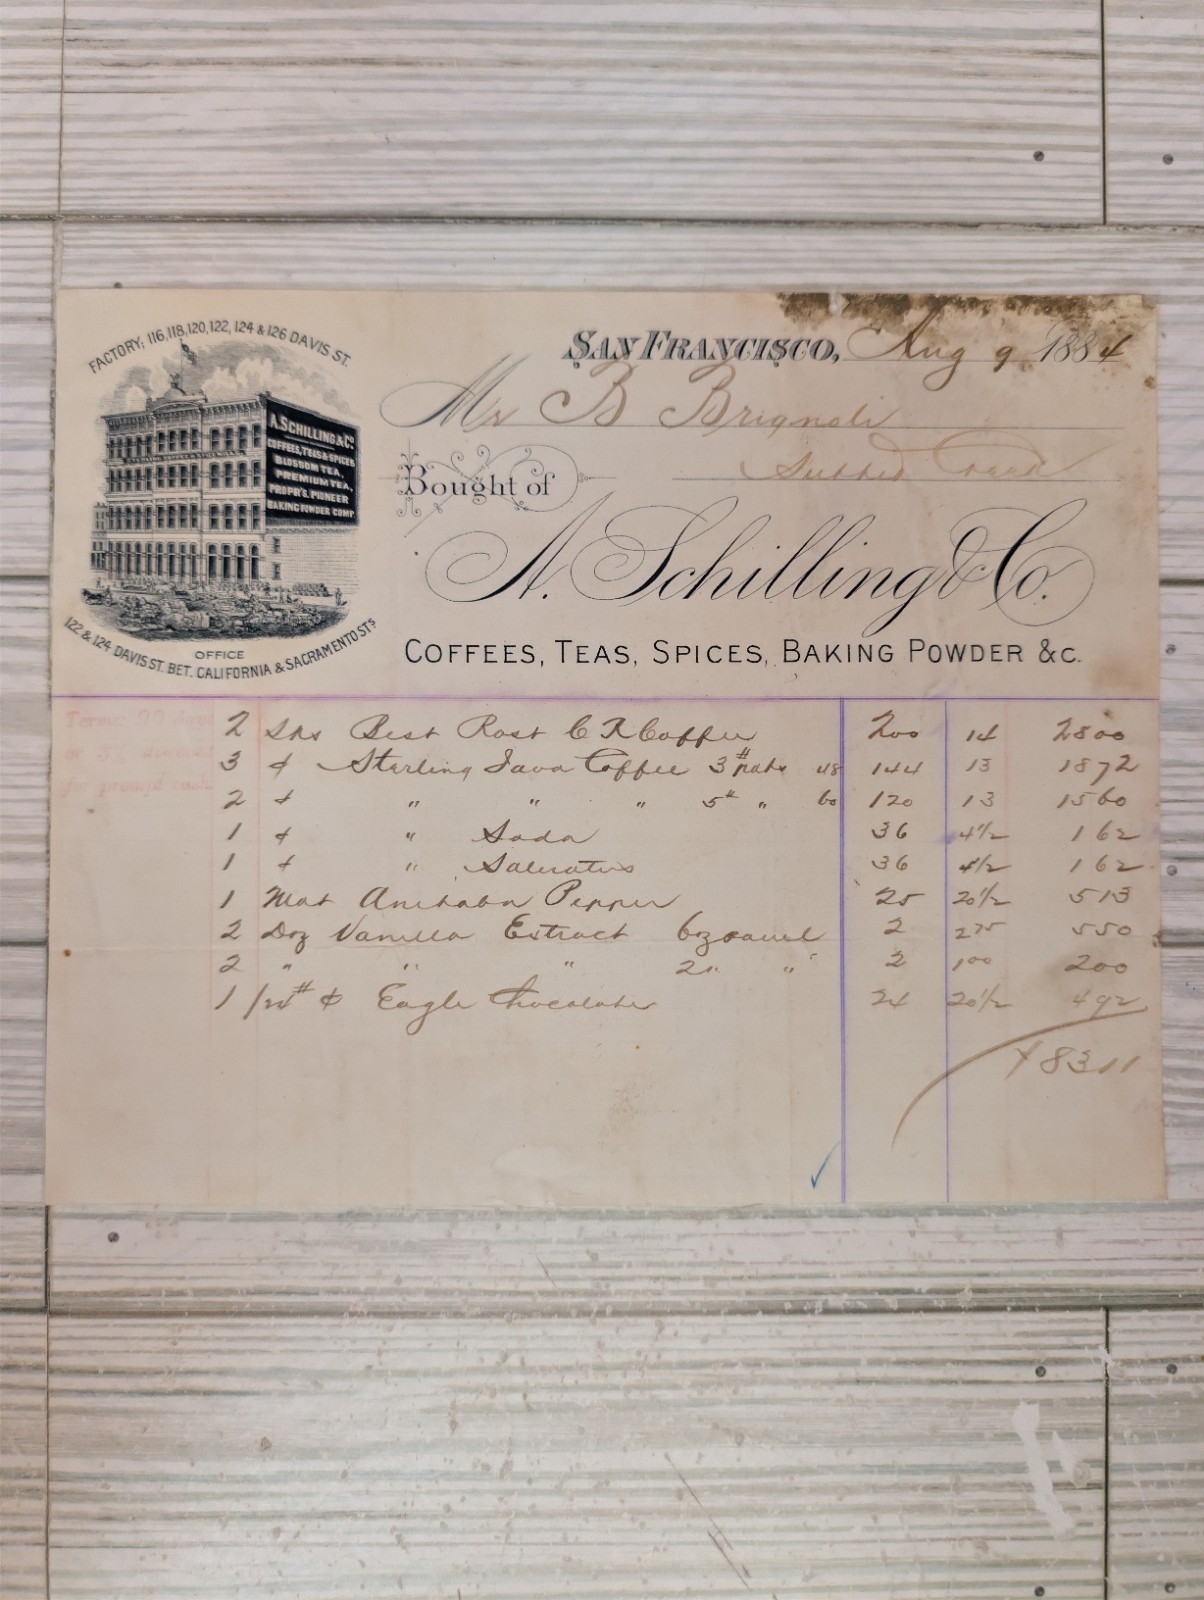 FACTORY; 116,118,120,122, 124 & 126 DAVIS ST.
A. SCHILLING & CO.
COFFEES, TEAS & SPICES
BLOSSOM TEA,
PREMIUM TEA,
PROPR'S. PIONEER
BAKING POWDER COMP.
OFFICE
122 & 124 DAVIS ST. BET. CALIFORNIA & SACRAMENTO STS
SAN FRANCISCO, Aug 9 1884
Mr B Brignoli
Sutter Creek
Bought of
A. Schilling & Co.
COFFEES, TEAS, SPICES, BAKING POWDER &c.
Terms: 90 days
or % discount
for prompt cash.
2 Best Rost C R Coffee 200 14 2800
3 ¢ Sterling Java Coffee 3# 48 144 13 1872
2 ¢ " " " 5# " 60 120 13 1560
1 ¢ " Soda 36 4½ 162
1 ¢ " Saleratus 36 4½ 162
1 Mat Pepper 25 20½ 513
2 Doz Vanilla Extract 6oz 2 275 550
2 " " " 2 " " 2 100 200
1 ¢ Eagle Chocolate 24 20½ 492
8311